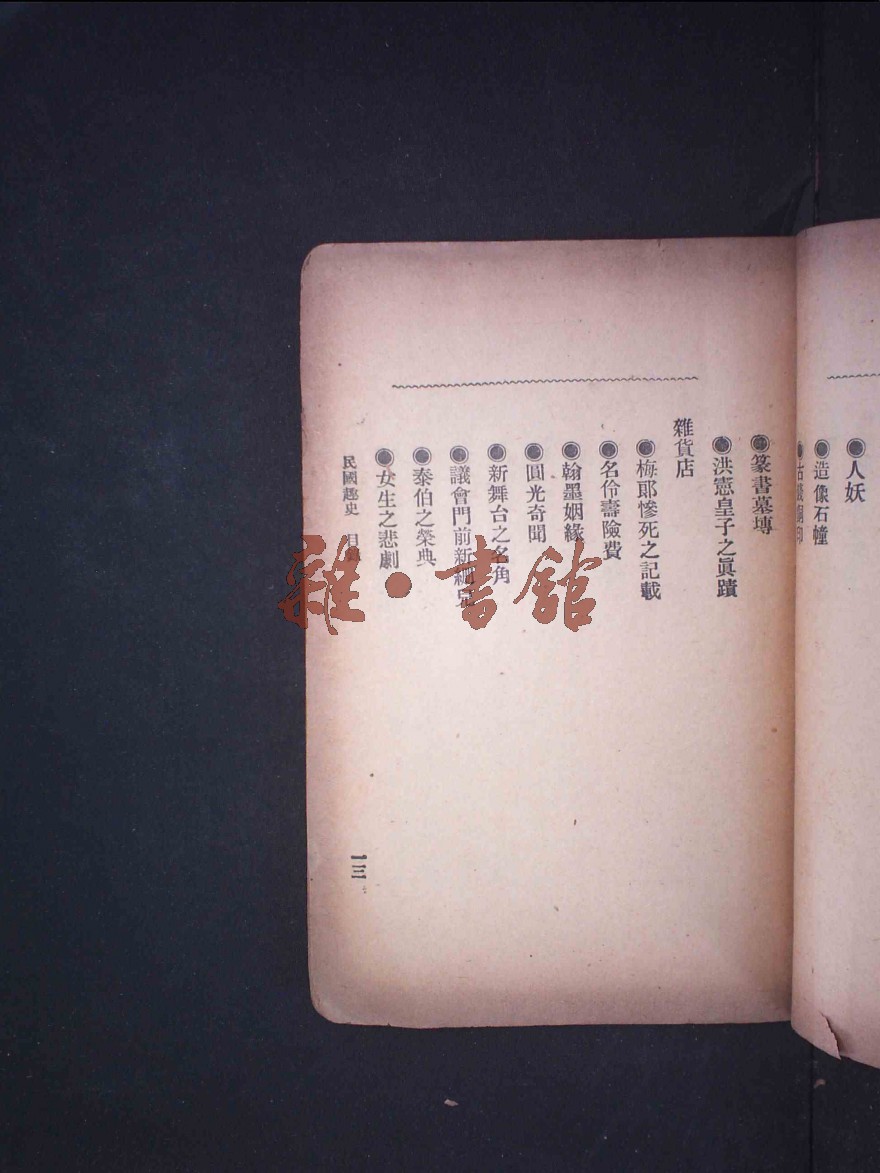 ●人妖
●造像石幢
●古錢銅印
●篆書墓塼
●洪憲皇子之眞蹟
雜貨店
●梅郎慘死之記載
●名伶壽險費
●翰墨姻緣
●圓光奇聞
●新舞台之名角
●議會門前新
●泰伯之榮典
●女生之悲劇
民國趣史 目錄
一三
雜·書舘